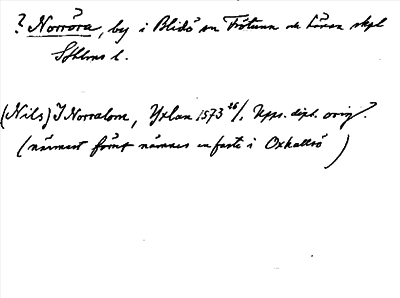 ? Norröra, by i Blidö sn Frötuna och Länna skpl
Sthlms l.
(Nils) I Norralom, Yxlan 1573 26/1 Upps. dipl. orig?
(närmast förut nämnes en faste i Oxhallsö)